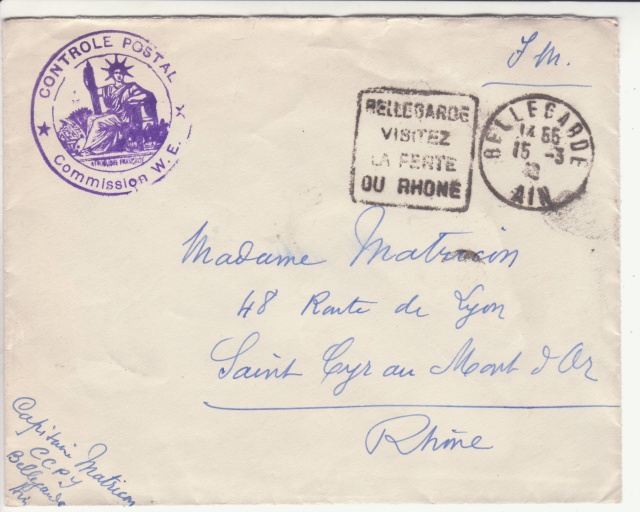 CONTROLE POSTAL
REPUBLIQUE FRANÇAISE
Commission W.E.
F.M.
BELLEGARDE
VISITEZ
LA PERTE
DU RHONE
BELLEGARDE
14 55
15 -3
AIN
Madame Matricon
48 Route de Lyon
Saint Cyr au Mont d'Or
Rhône
Capitaine Matricon
Bellegarde
Ain